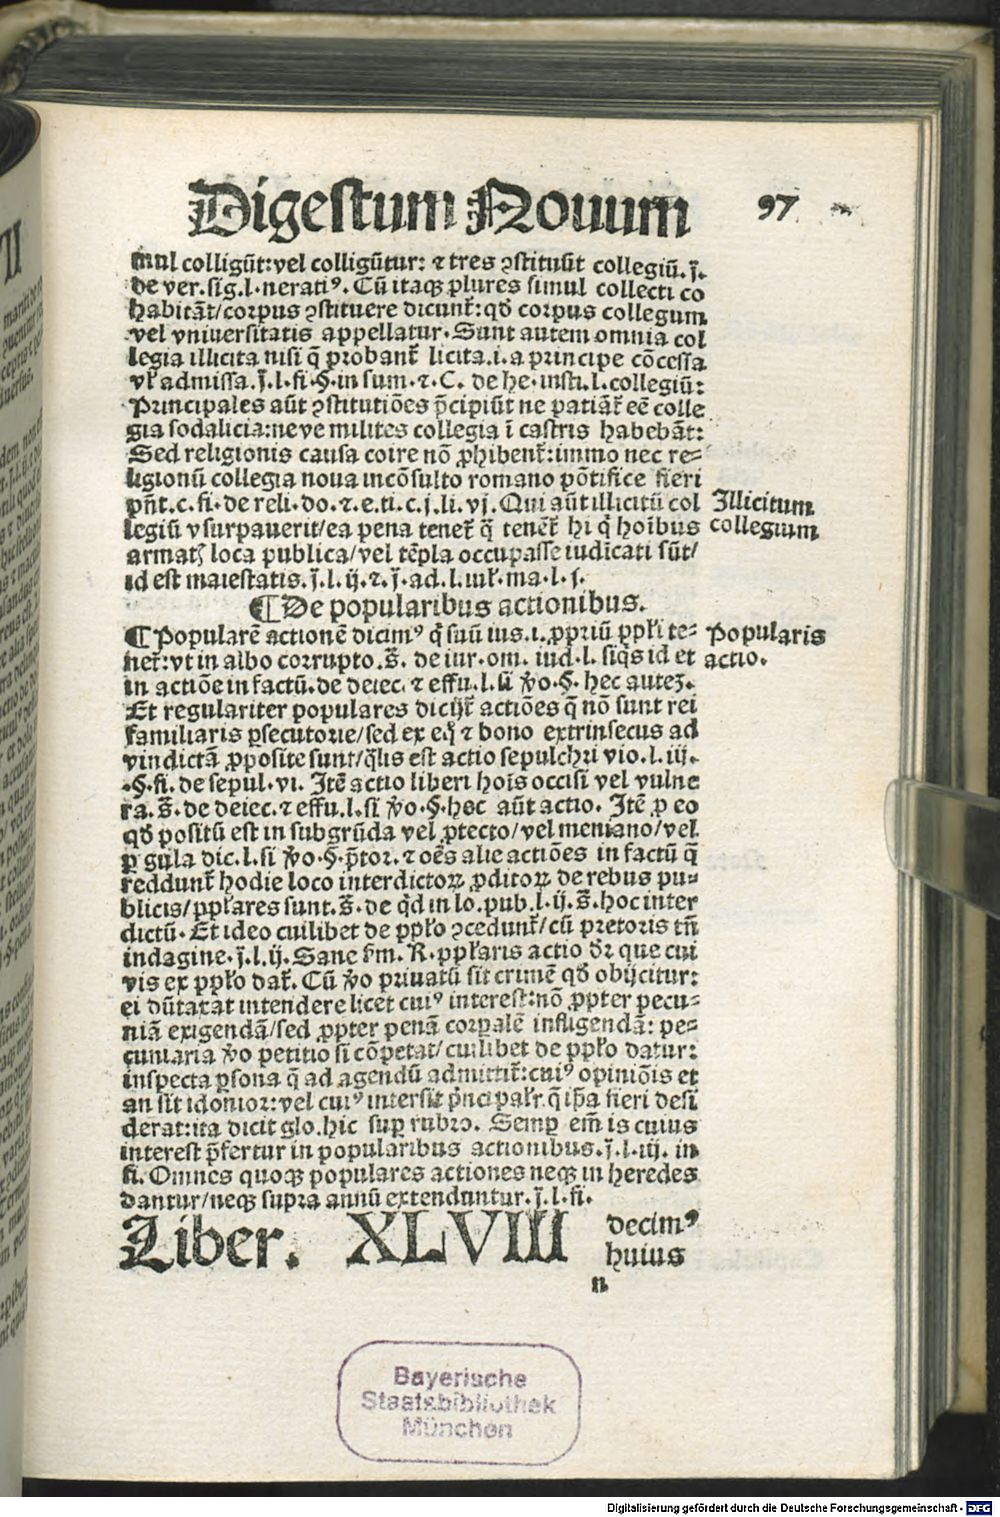 Digestum Nouum 97
mul colligūt: vel colligūtur: ⁊ tres ꝯstituūt collegiū. j̄.
de ver. sig. l. neratiꝰ. Cū itaqꝫ plures simul collecti co
habitāt/ corpus ꝯstituere dicunt᷑: qd̄ corpus collegum
vel vniuersitatis appellatur. Sunt autem omnia col
legia illicita nisi q̄ probant᷑ licita. i. a principe cōcessa
vl̓ admissa. j̄. l. fi. §. in sum. ⁊. C. de he. insti. l. collegiū:
Principales aūt ꝯstitutiōes p̄cipiūt ne patiāt᷑ eē colle
gia sodalicia: neve milites collegia ī castris habebāt:
Sed religionis causa coire nō ꝓhibent᷑: immo nec re⸗
ligionū collegia noua incōsulto romano pōtifice fieri
pn̄t. c. fi. de reli. do. ⁊. e. ti. c. j. li. vj. Qui aūt illicitū col
legiū vsurpauerit/ ea pena tenet᷑ q̄ tenēt᷑ hi q̇ hoībus
armatꝭ loca publica/ vel tēpla occupasse iudicati sūt/
id est maiestatis. j̄. l. ij. ⁊. j̄. ad. l. iul̓. ma. l. j.
Illicitum
collegium
¶ De popularibus actionibus.
¶ Popularē actionē dicimꝰ q̄ suū ius. i. ꝓpriū ppl̓i te⸗
net᷑: vt in albo corrupto. s̄. de iur. om. iud. l. siq̇s id et
in actiōe in factū. de deiec. ⁊ effu. l. si v̊o. §. hec auteꝫ.
Et regulariter populares dicūt᷑ actiōes q̄ nō sunt rei
familiaris ꝑsecutorie/ sed ex eq̊ ⁊ bono extrinsecus ad
vindictā ꝓposite sunt/ q̄lis est actio sepulchri vio. l. iij.
§. fi. de sepul. vi. Itē actio liberi hoīs occisi vel vulne
ra. s̄. de deiec. ⁊ effu. l. si v̊o. §. hec aūt actio. Itē ꝓ eo
qd̄ positū est in subgrūda vel ꝓtecto/ vel meniano/ vel
ꝑgula dic. l. si v̊o. §. p̄tor. ⁊ oēs alie actiōes in factū q̄
reddunt᷑ hodie loco interdictoꝝ ꝓditoꝝ de rebus pu⸗
blicis/ ppl̓ares sunt. s̄. de q̇d in lo. pub. l. ij. s̄. hoc inter
dictū. Et ideo cuilibet de ppl̓o ꝯcedunt᷑/ cū pretoris tn̄
indagine. j̄. l. ij. Sane fm. R. ppl̓aris actio dr̄ que cui
vis ex ppl̓o dat᷑. Cū v̊o priuatū sit crimē qd̄ obijcitur:
ei dūtaxat intendere licet cuiꝰ interest: nō ꝓpter pecu⸗
niā exigendā/ sed ꝓpter penā corꝑalē infligendā: pe⸗
cuniaria v̊o petitio si cōpetat/ cuilibet de ppl̓o datur:
inspecta ꝑsona q̄ ad agendū admittit᷑: cuiꝰ opiniōis et
an sit idonior: vel cuiꝰ intersit pn̄cipalr̄ q̄ ip̄a fieri desi
derat: ita dicit glo. hic suꝑ rubro. Semꝑ em̄ is cuius
interest p̄fertur in popularibus actionibus. j̄. l. iij. in
fi. Omnes quoqꝫ populares actiones neqꝫ in heredes
dantur/ neqꝫ supra annū extenduntur. j̄. l. fi.
Popularis
actio.
Liber. XLVIII decimꝰ
huius
n
Bayerische
Staatsbibliothek
München
Digitalisierung gefördert durch die Deutsche Forschungsgemeinschaft - DFG